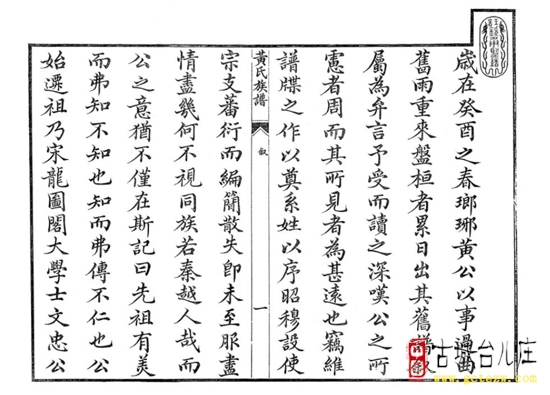 歲在癸酉之春瑯琊黃公以事過曲
舊雨重來盤桓者累日出其舊譜
屬為弁言予受而讀之深嘆公之所
慮者周而其所見者為甚遠也竊維
譜牒之作以奠系姓以序昭穆設使
黃氏族譜
叙
一
宗支蕃衍而編簡散失即未至服盡
情盡幾何不視同族若秦越人哉而
公之意猶不僅在斯記曰先祖有美
而弗知不知也知而弗傳不仁也公
始遷祖乃宋龍圖閣大學士文忠公
台儿庄